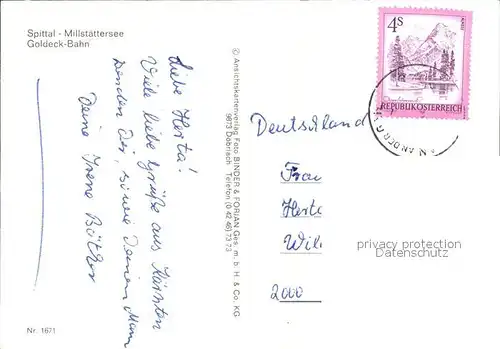 Spittal - Millstättersee
Goldeck-Bahn
Liebe Herta!
Viele liebe Grüße aus Kärnten
senden Dir, sowie Deinem Mann
Deine Irene
Nr. 1671
© Ansichtskartenverlag Foto BINDER & FORJAN Ges. m. b. H. & Co. KG
9873 Döbriach Telefon (0 42 46) 73 73
4S
REPUBLIK ÖSTERREICH
AN DER
Deutschland
Frau
Herta
Wil
2000
privacy protection
Datenschutz